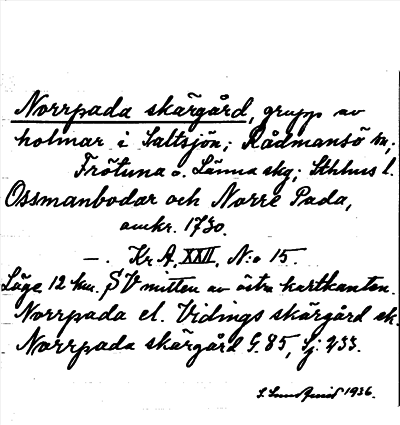 Norrpada skärgård, grupp av
holmar i Saltsjön; Rådmansö sn,
Frötuna o. Länna skg; Sthlms l.
Ossmanbodar och Norre Pada,
omkr. 1730.
—. Kr. A, XXII, N:o 15.
Läge 12 km. SV mitten av östra kartkanten.
Norrpada el. Vidings skärgård ek.
Norrpada skärgård G. 85, Sj: 933.
S. 1936.